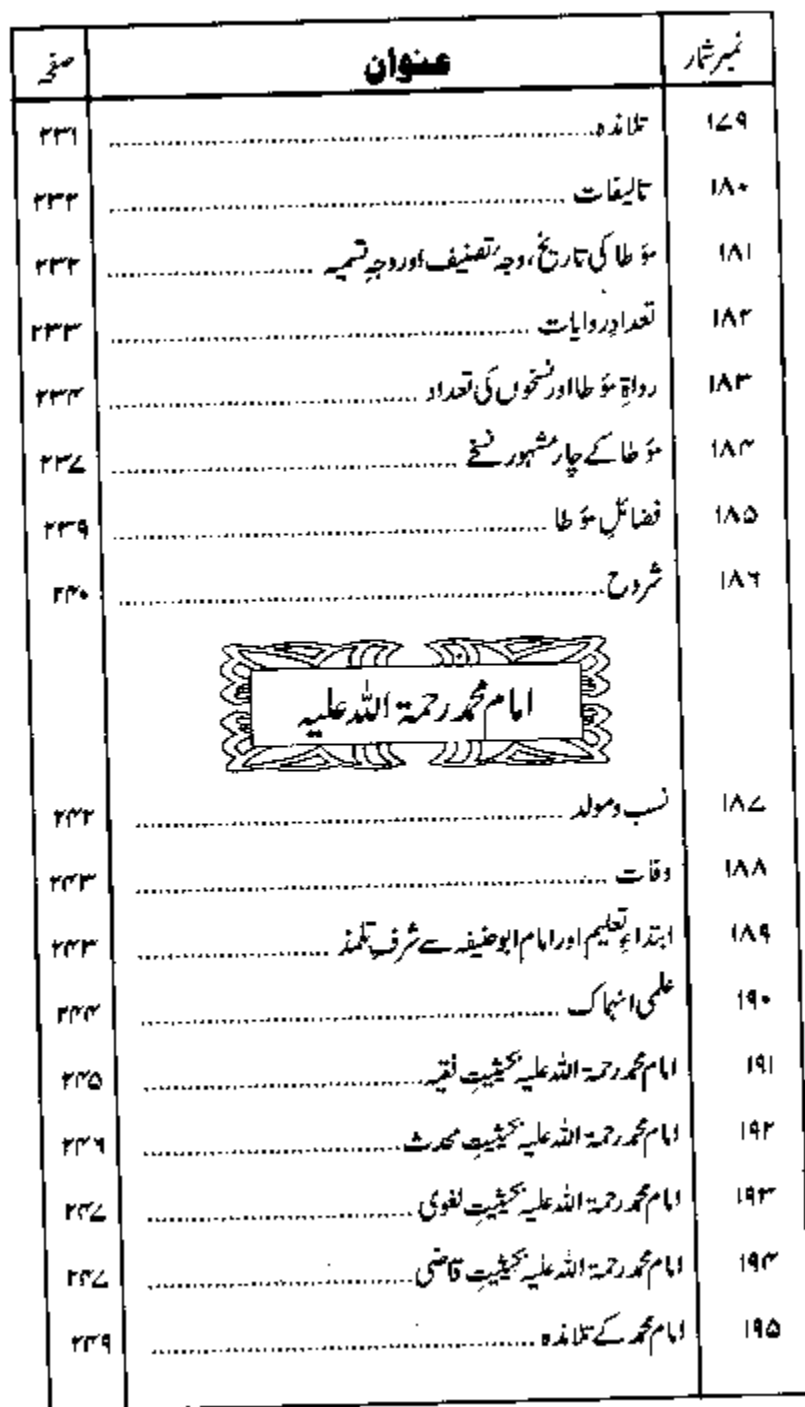 نمبر شمار عنوان صفحہ
۱۷۹ تلامذہ ........ ۲۳۱
۱۸۰ تالیفات ........ ۲۳۲
۱۸۱ مؤطا کی تاریخ، وجہ تصنیف اور وجہِ تسمیہ ........ ۲۳۲
۱۸۲ تعدادِ روایات ........ ۲۳۳
۱۸۳ رواۃِ مؤطا اور نسخوں کی تعداد ........ ۲۳۴
۱۸۴ مؤطا کے چار مشہور نسخے ........ ۲۳۷
۱۸۵ فضائلِ مؤطا ........ ۲۳۹
۱۸۶ شروح ........ ۲۴۰
امام محمد رحمۃ اللہ علیہ
۱۸۷ نسب و مولد ........ ۲۴۲
۱۸۸ وفات ........ ۲۴۳
۱۸۹ ابتداءِ تعلیم اور امام ابوحنیفہ سے شرفِ تلمذ ........ ۲۴۳
۱۹۰ علمی انہماک ........ ۲۴۴
۱۹۱ امام محمد رحمۃ اللہ علیہ بحیثیتِ فقیہ ........ ۲۴۵
۱۹۲ امام محمد رحمۃ اللہ علیہ بحیثیتِ محدث ........ ۲۴۶
۱۹۳ امام محمد رحمۃ اللہ علیہ بحیثیتِ لغوی ........ ۲۴۷
۱۹۴ امام محمد رحمۃ اللہ علیہ بحیثیتِ قاضی ........ ۲۴۷
۱۹۵ امام محمد کے تلامذہ ........ ۲۴۹